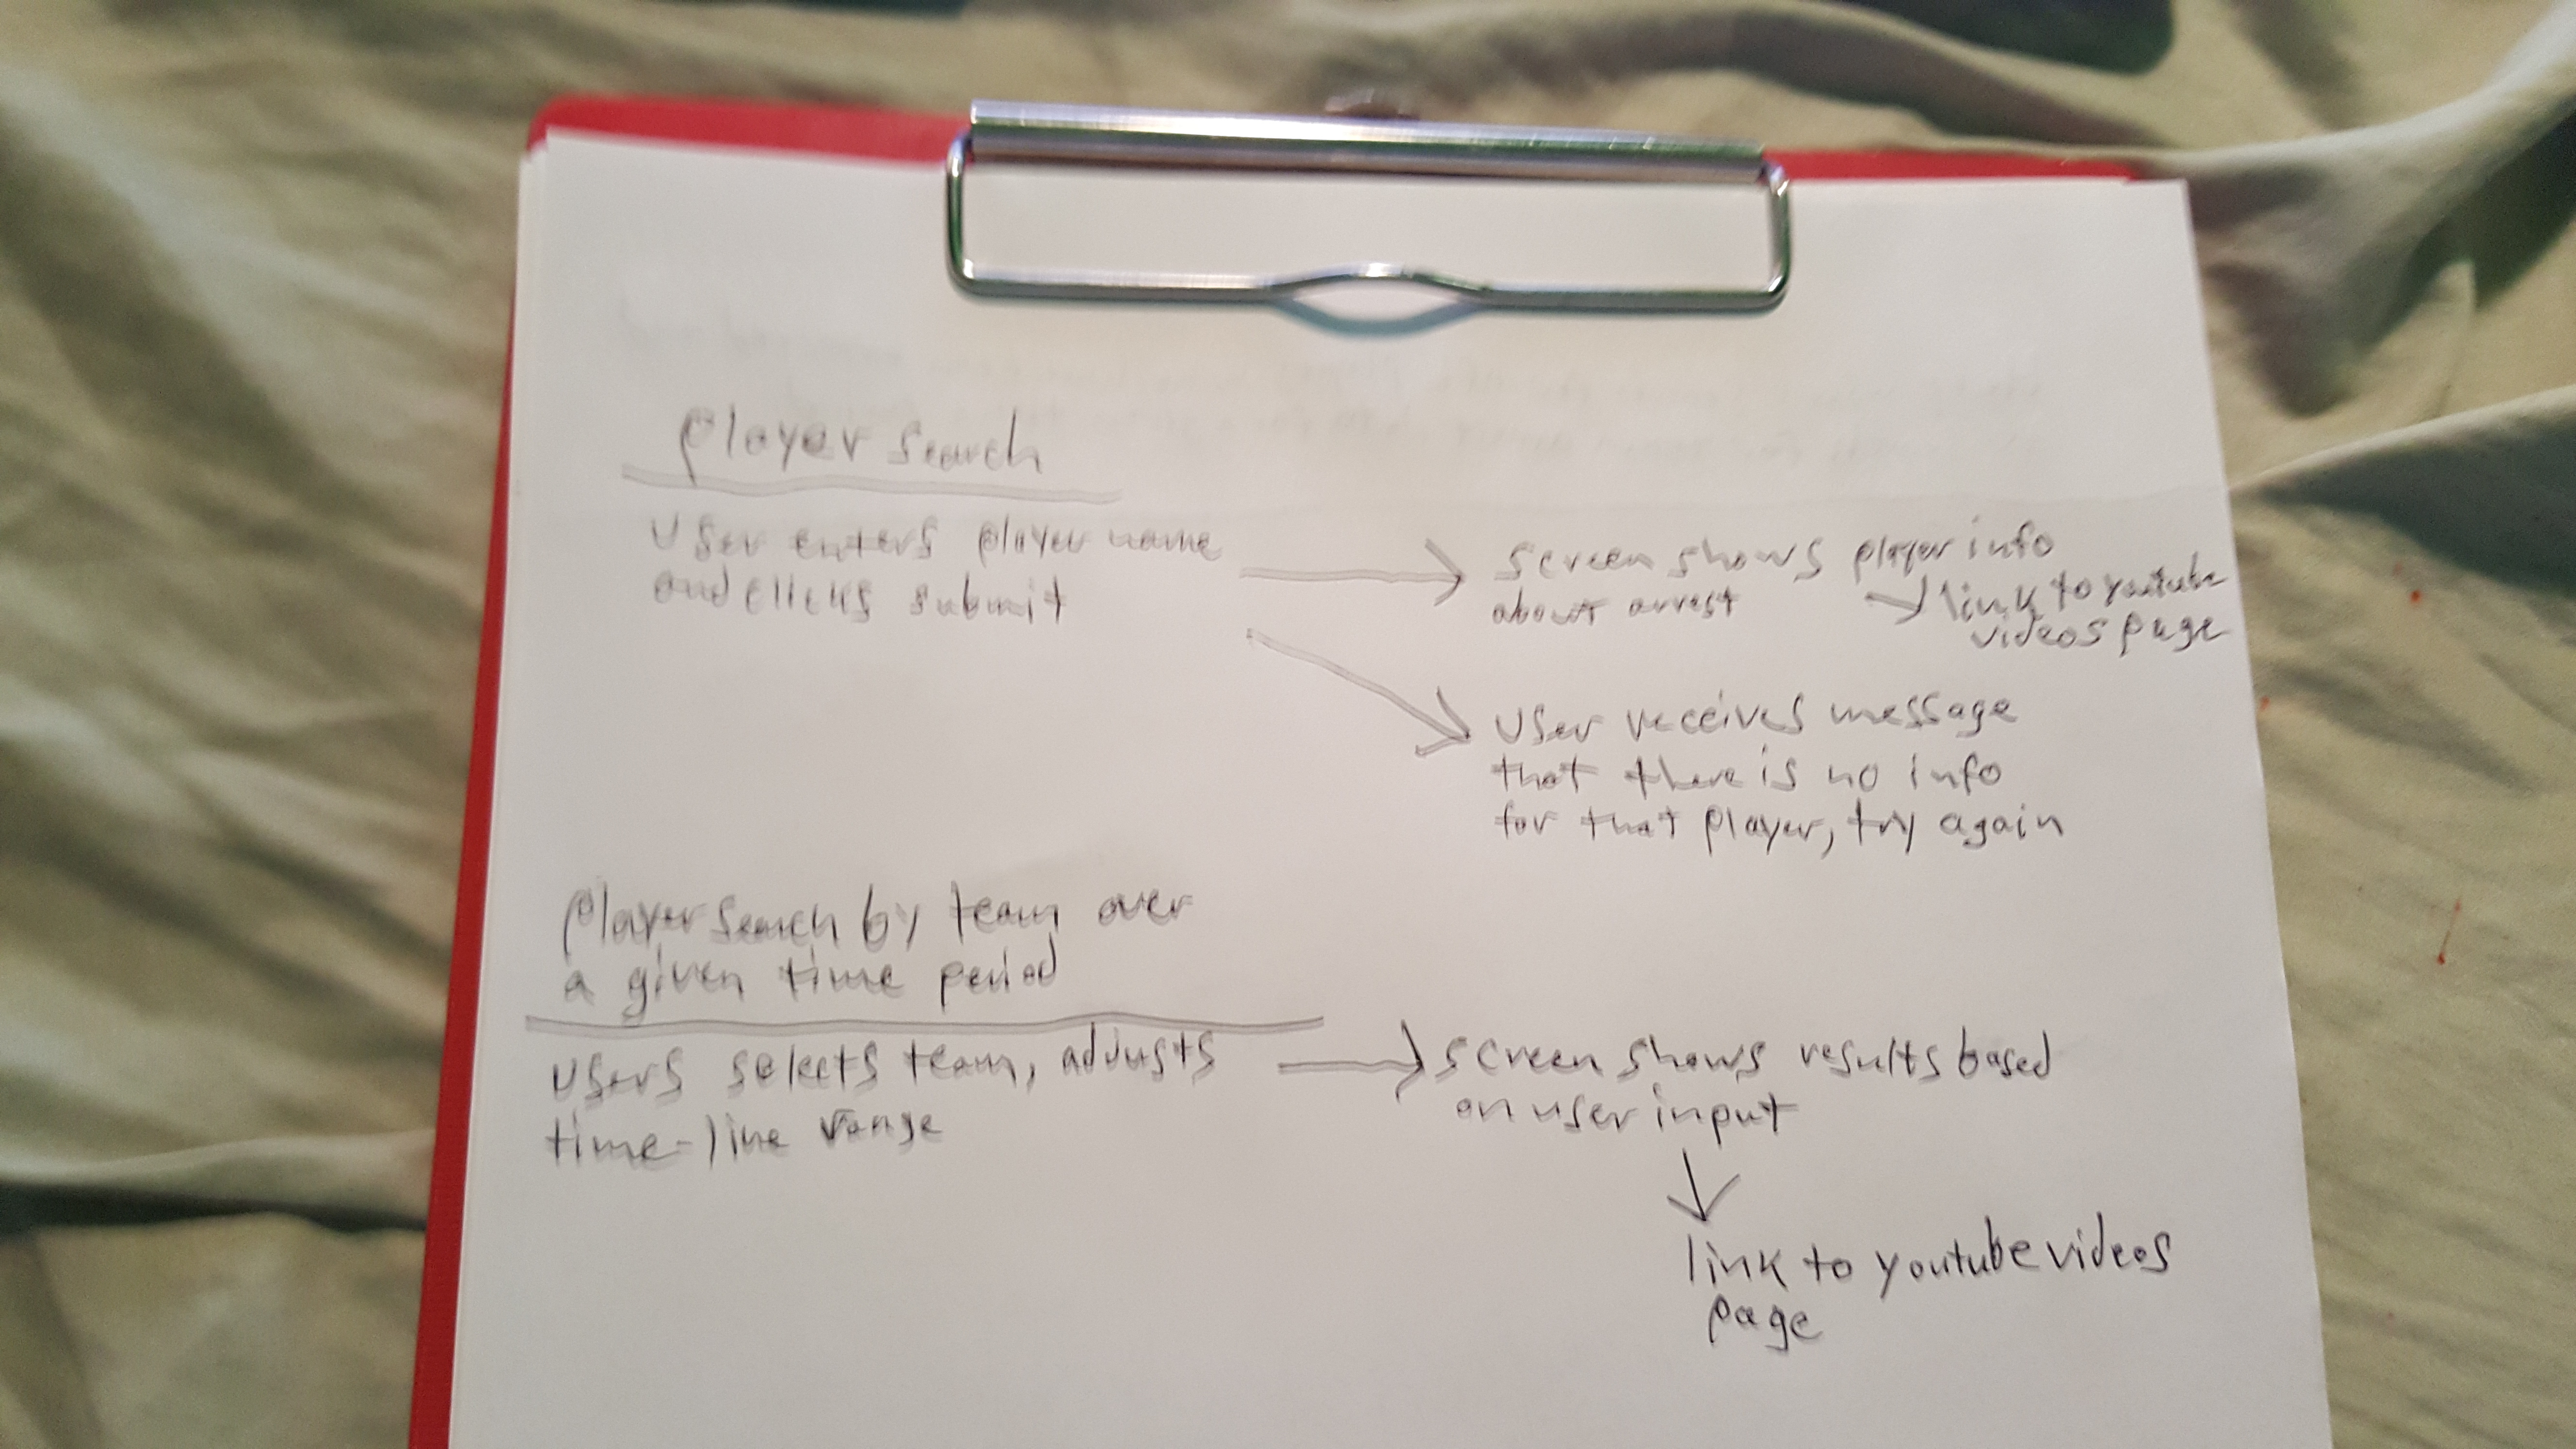 Player Search
User enters player name
and clicks submit
screen shows player info
about arrest
link to youtube
videos page
User receives message
that there is no info
for that player, try again
Player Search by team over
a given time period
Users selects team, adjusts
time-line range
screen shows results based
on user input
link to youtube videos
page